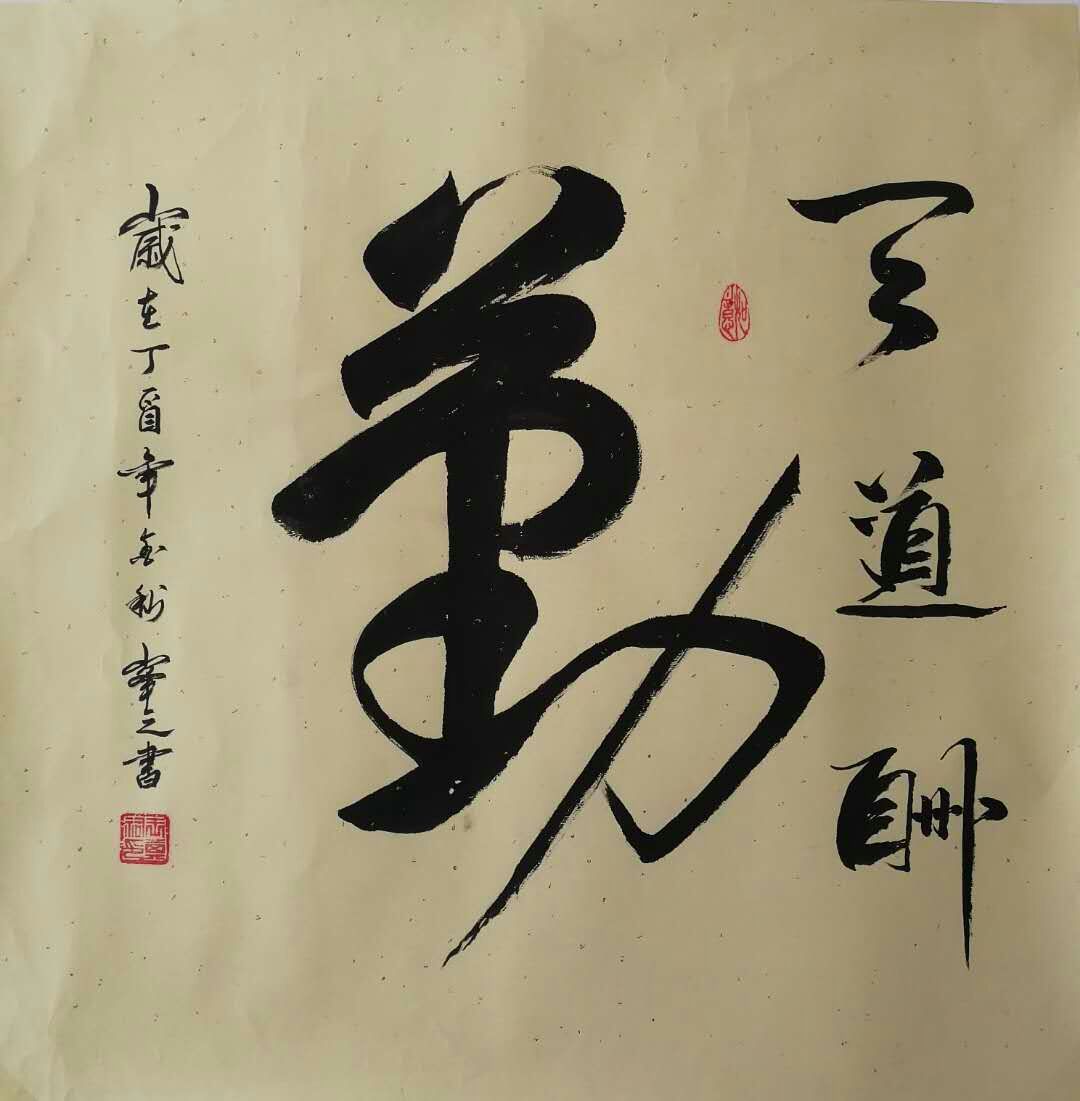 天道酬
勤
歲在丁酉年金秋峯之書